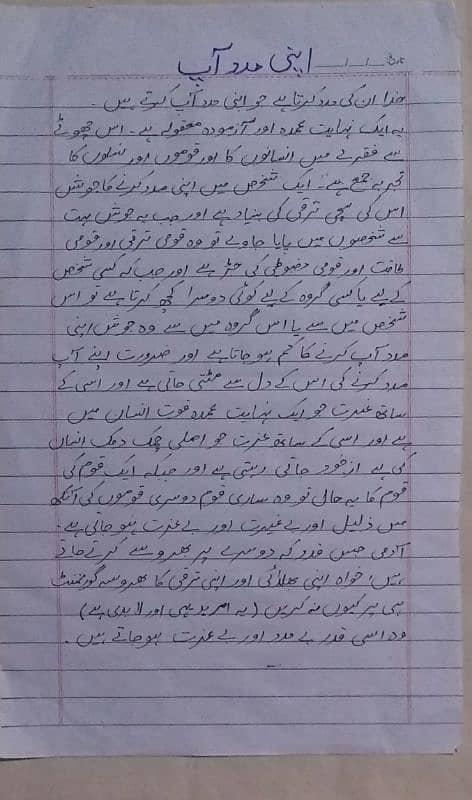 تاریخ ۔۔۔/۔۔۔/۔۔۔
اپنی مدد آپ
خدا ان کی مدد کرتا ہے جو اپنی مدد آپ کرتے ہیں ۔
یہ ایک نہایت عمدہ اور آزمودہ مقولہ ہے ۔ اس چھوٹے
سے فقرے میں انسانوں کا اور قوموں اور نسلوں کا
تجربہ جمع ہے ۔ ایک شخص میں اپنی مدد کرنے کا جوش
اس کی سچی ترقی کی بنیاد ہے اور جب یہ جوش بہت
سے شخصوں میں پایا جاوے تو وہ قومی ترقی اور قومی
طاقت اور قومی مضبوطی کی جڑ ہے اور جب کہ کسی شخص
کے لیے یا کسی گروہ کے لیے کوئی دوسرا کچھ کرتا ہے تو اس
شخص میں سے یا اس گروہ میں سے وہ جوش اپنی
مدد آپ کرنے کا کم ہو جاتا ہے اور ضرورت اپنے آپ
مدد کرنے کی اس کے دل سے مٹتی جاتی ہے اور اسی کے
ساتھ غیرت جو ایک نہایت عمدہ قوت انسان میں
ہے اور اسی کے ساتھ عزت جو اصلی چمک دمک انسان
کی ہے از خود جاتی رہتی ہے اور جبکہ ایک قوم کی
قوم کا یہ حال تو وہ ساری قوم دوسری قوموں کی آنکھ
میں ذلیل اور بے غیرت اور بے عزت ہو جاتی ہے ۔
آدمی جس قدر کہ دوسرے پر بھروسے کرتے جاتے
ہیں، خواہ اپنی بھلائی اور اپنی ترقی کا بھروسہ گورنمنٹ
ہی پر کیوں نہ کریں (یہ امر بدیہی اور لابدی ہے)
وہ اسی قدر بے مدد اور بے عزت ہو جاتے ہیں ۔